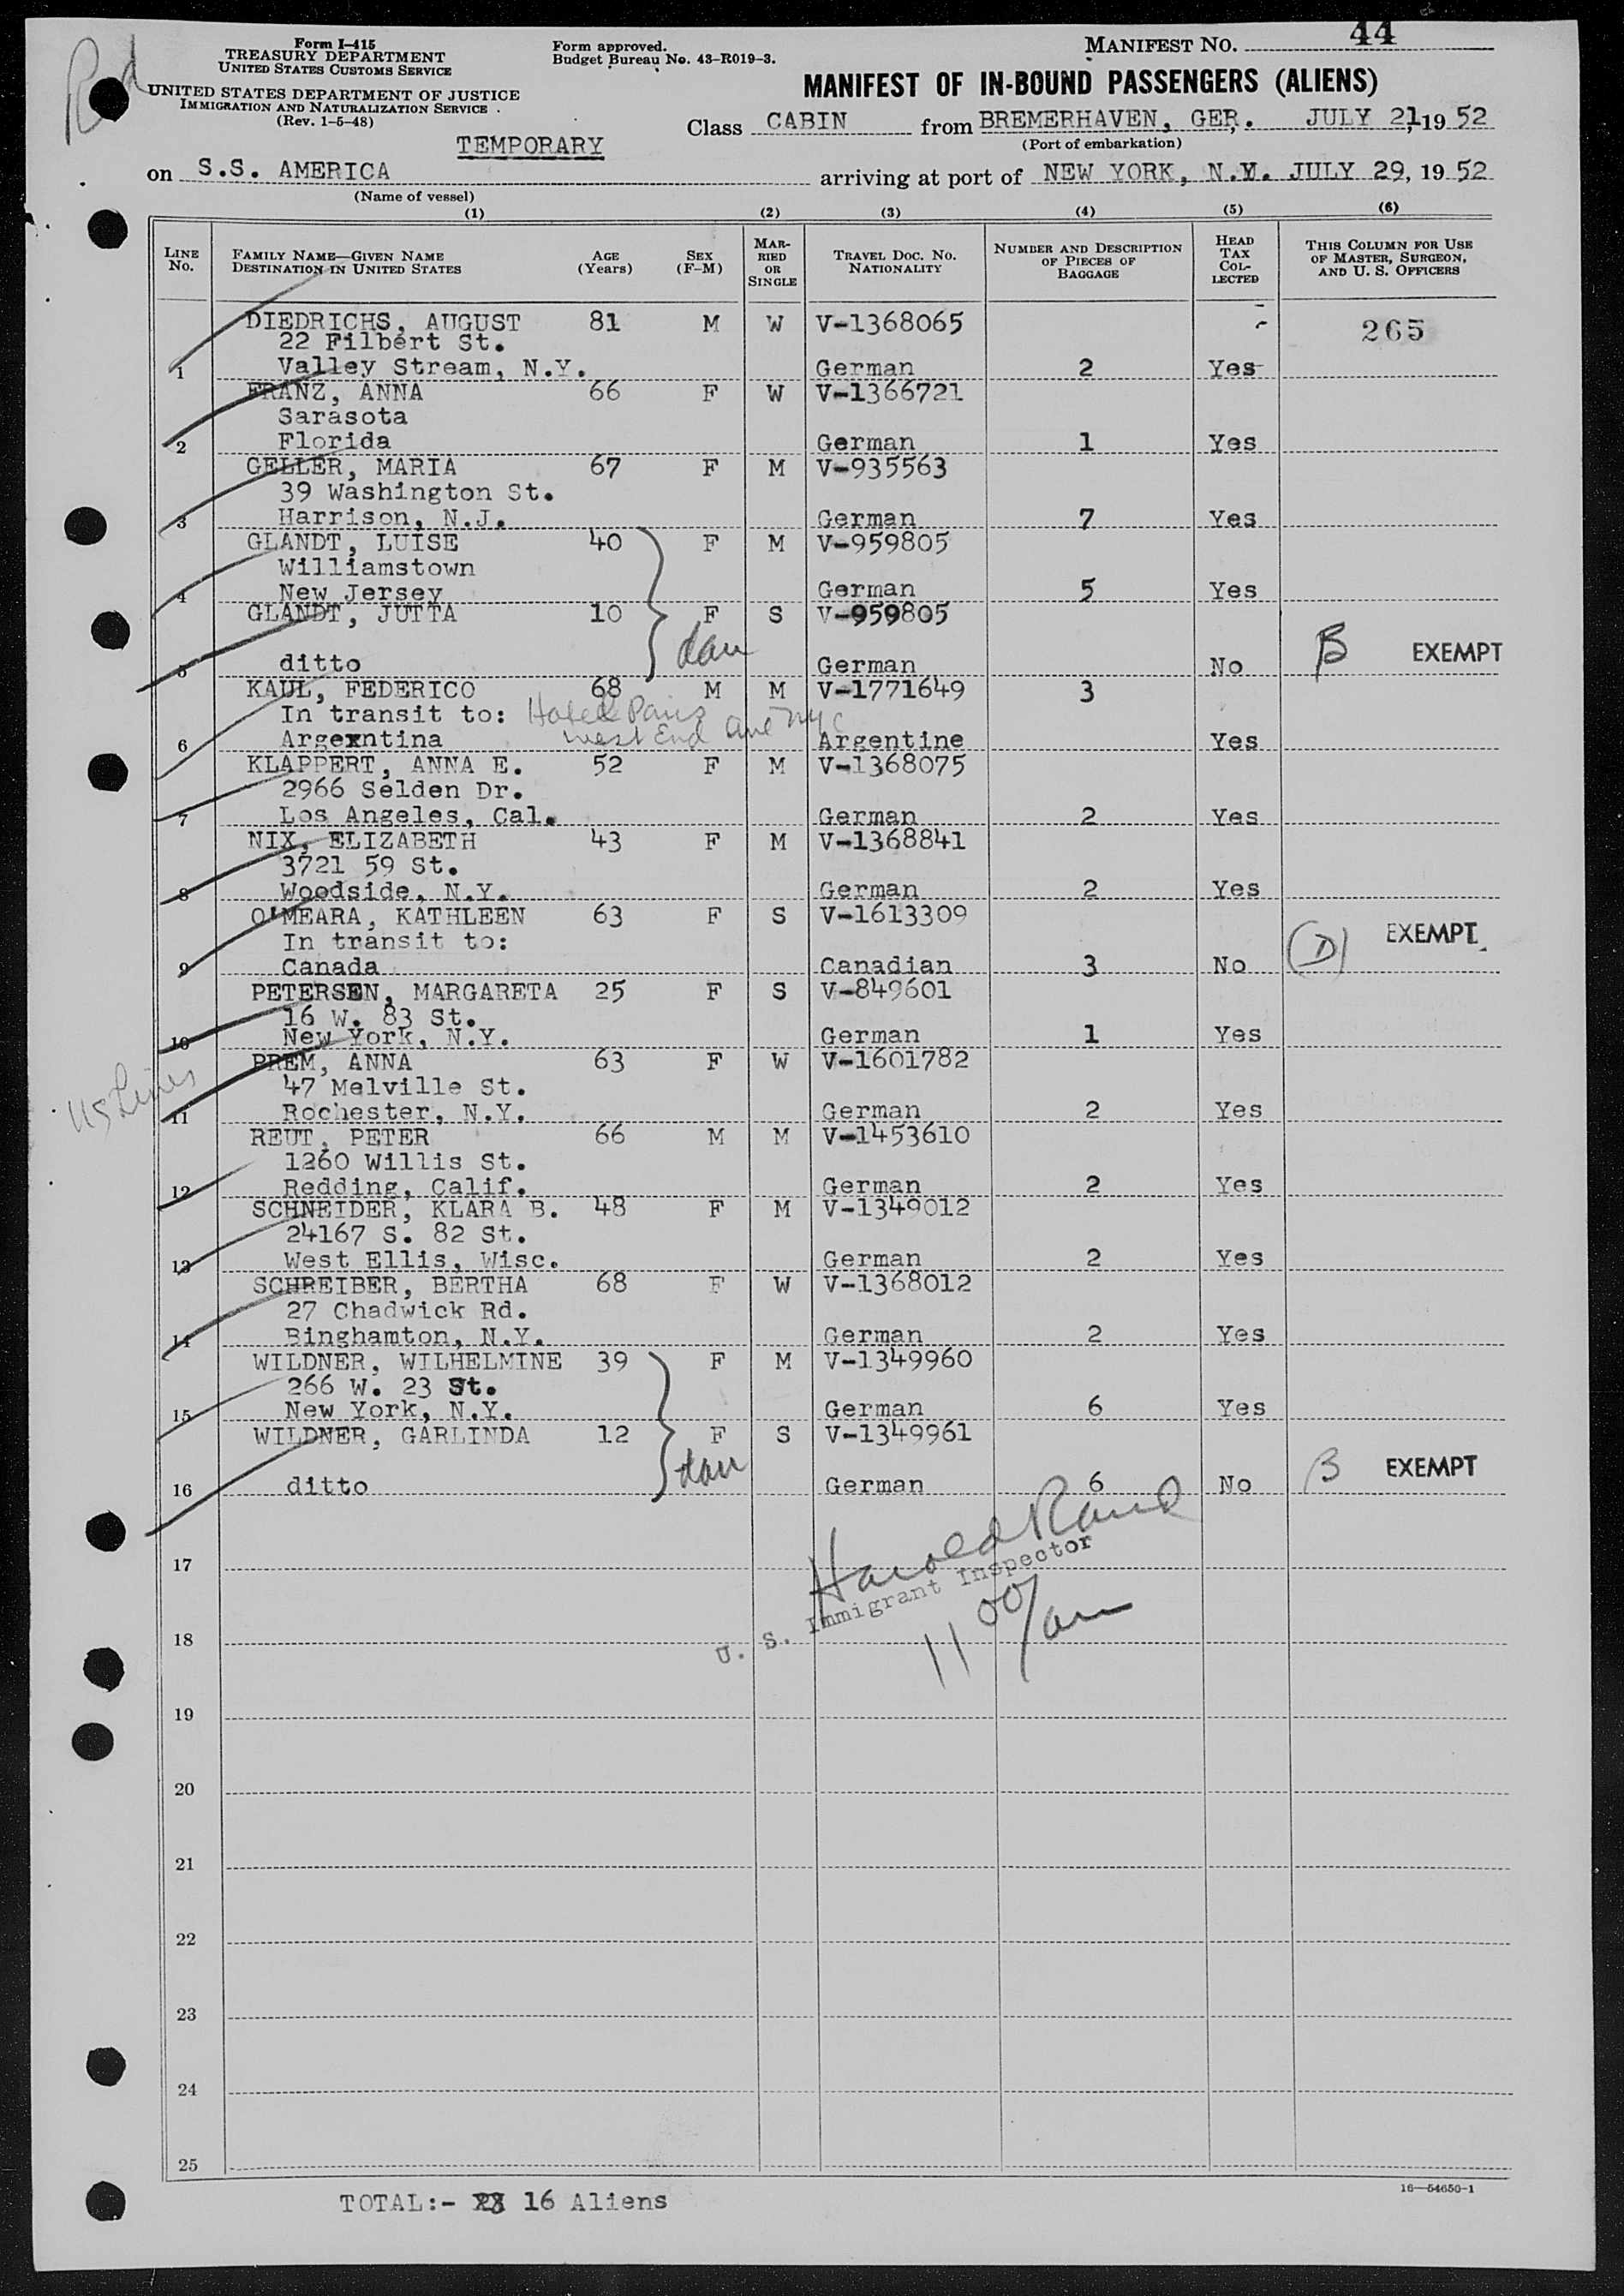 Rd
Form I-415
TREASURY DEPARTMENT
UNITED STATES CUSTOMS SERVICE
UNITED STATES DEPARTMENT OF JUSTICE
IMMIGRATION AND NATURALIZATION SERVICE
(Rev. 1-5-48)
Form approved.
Budget Bureau No. 43-R019-3.
MANIFEST NO. 44
MANIFEST OF IN-BOUND PASSENGERS (ALIENS)
Class CABIN from BREMERHAVEN, GER. JULY 21, 19 52
(Port of embarkation)
TEMPORARY
on S.S. AMERICA arriving at port of NEW YORK, N.Y. JULY 29, 19 52
(Name of vessel)
(1) (2) (3) (4) (5) (6)
LINE No. FAMILY NAME—GIVEN NAME DESTINATION IN UNITED STATES AGE (Years) SEX (F-M) MARRIED OR SINGLE TRAVEL DOC. NO. NATIONALITY NUMBER AND DESCRIPTION OF PIECES OF BAGGAGE HEAD TAX COLLECTED THIS COLUMN FOR USE OF MASTER, SURGEON, AND U. S. OFFICERS
DIEDRICHS, AUGUST 81 M W V-1368065 265
22 Filbert St.
1 Valley Stream, N.Y. German 2 Yes
FRANZ, ANNA 66 F W V-1366721
Sarasota
2 Florida German 1 Yes
GELLER, MARIA 67 F M V-935563
39 Washington St.
3 Harrison, N.J. German 7 Yes
GLANDT, LUISE 40 F M V-959805
Williamstown
4 New Jersey German 5 Yes
GLANDT, JUTTA 10 F S V-959805
dau B EXEMPT
5 ditto German No
KAUL, FEDERICO 68 M M V-1771649 3
In transit to: Hotel Paris
6 Argexntina West End Ave NYC Argentine Yes
KLAPPERT, ANNA E. 52 F M V-1368075
2966 Selden Dr.
7 Los Angeles, Cal. German 2 Yes
NIX, ELIZABETH 43 F M V-1368841
3721 59 St.
8 Woodside, N.Y. German 2 Yes
O'MEARA, KATHLEEN 63 F S V-1613309
In transit to: (D) EXEMPT
9 Canada Canadian 3 No
PETERSEN, MARGARETA 25 F S V-849601
16 W. 83 St.
10 New York, N.Y. German 1 Yes
PREM, ANNA 63 F W V-1601782
US Lines
47 Melville St.
11 Rochester, N.Y. German 2 Yes
REUT, PETER 66 M M V-1453610
1260 Willis St.
12 Redding, Calif. German 2 Yes
SCHNEIDER, KLARA B. 48 F M V-1349012
24167 S. 82 St.
13 West Ellis, Wisc. German 2 Yes
SCHREIBER, BERTHA 68 F W V-1368012
27 Chadwick Rd.
14 Binghamton, N.Y. German 2 Yes
WILDNER, WILHELMINE 39 F M V-1349960
266 W. 23 St.
15 New York, N.Y. German 6 Yes
WILDNER, GARLINDA 12 F S V-1349961
dau B EXEMPT
16 ditto German 6 No
Harold Rand
17
U. S. Immigrant Inspector
11 00/am
18
19
20
21
22
23
24
25
16—54650-1
TOTAL:- 16 Aliens